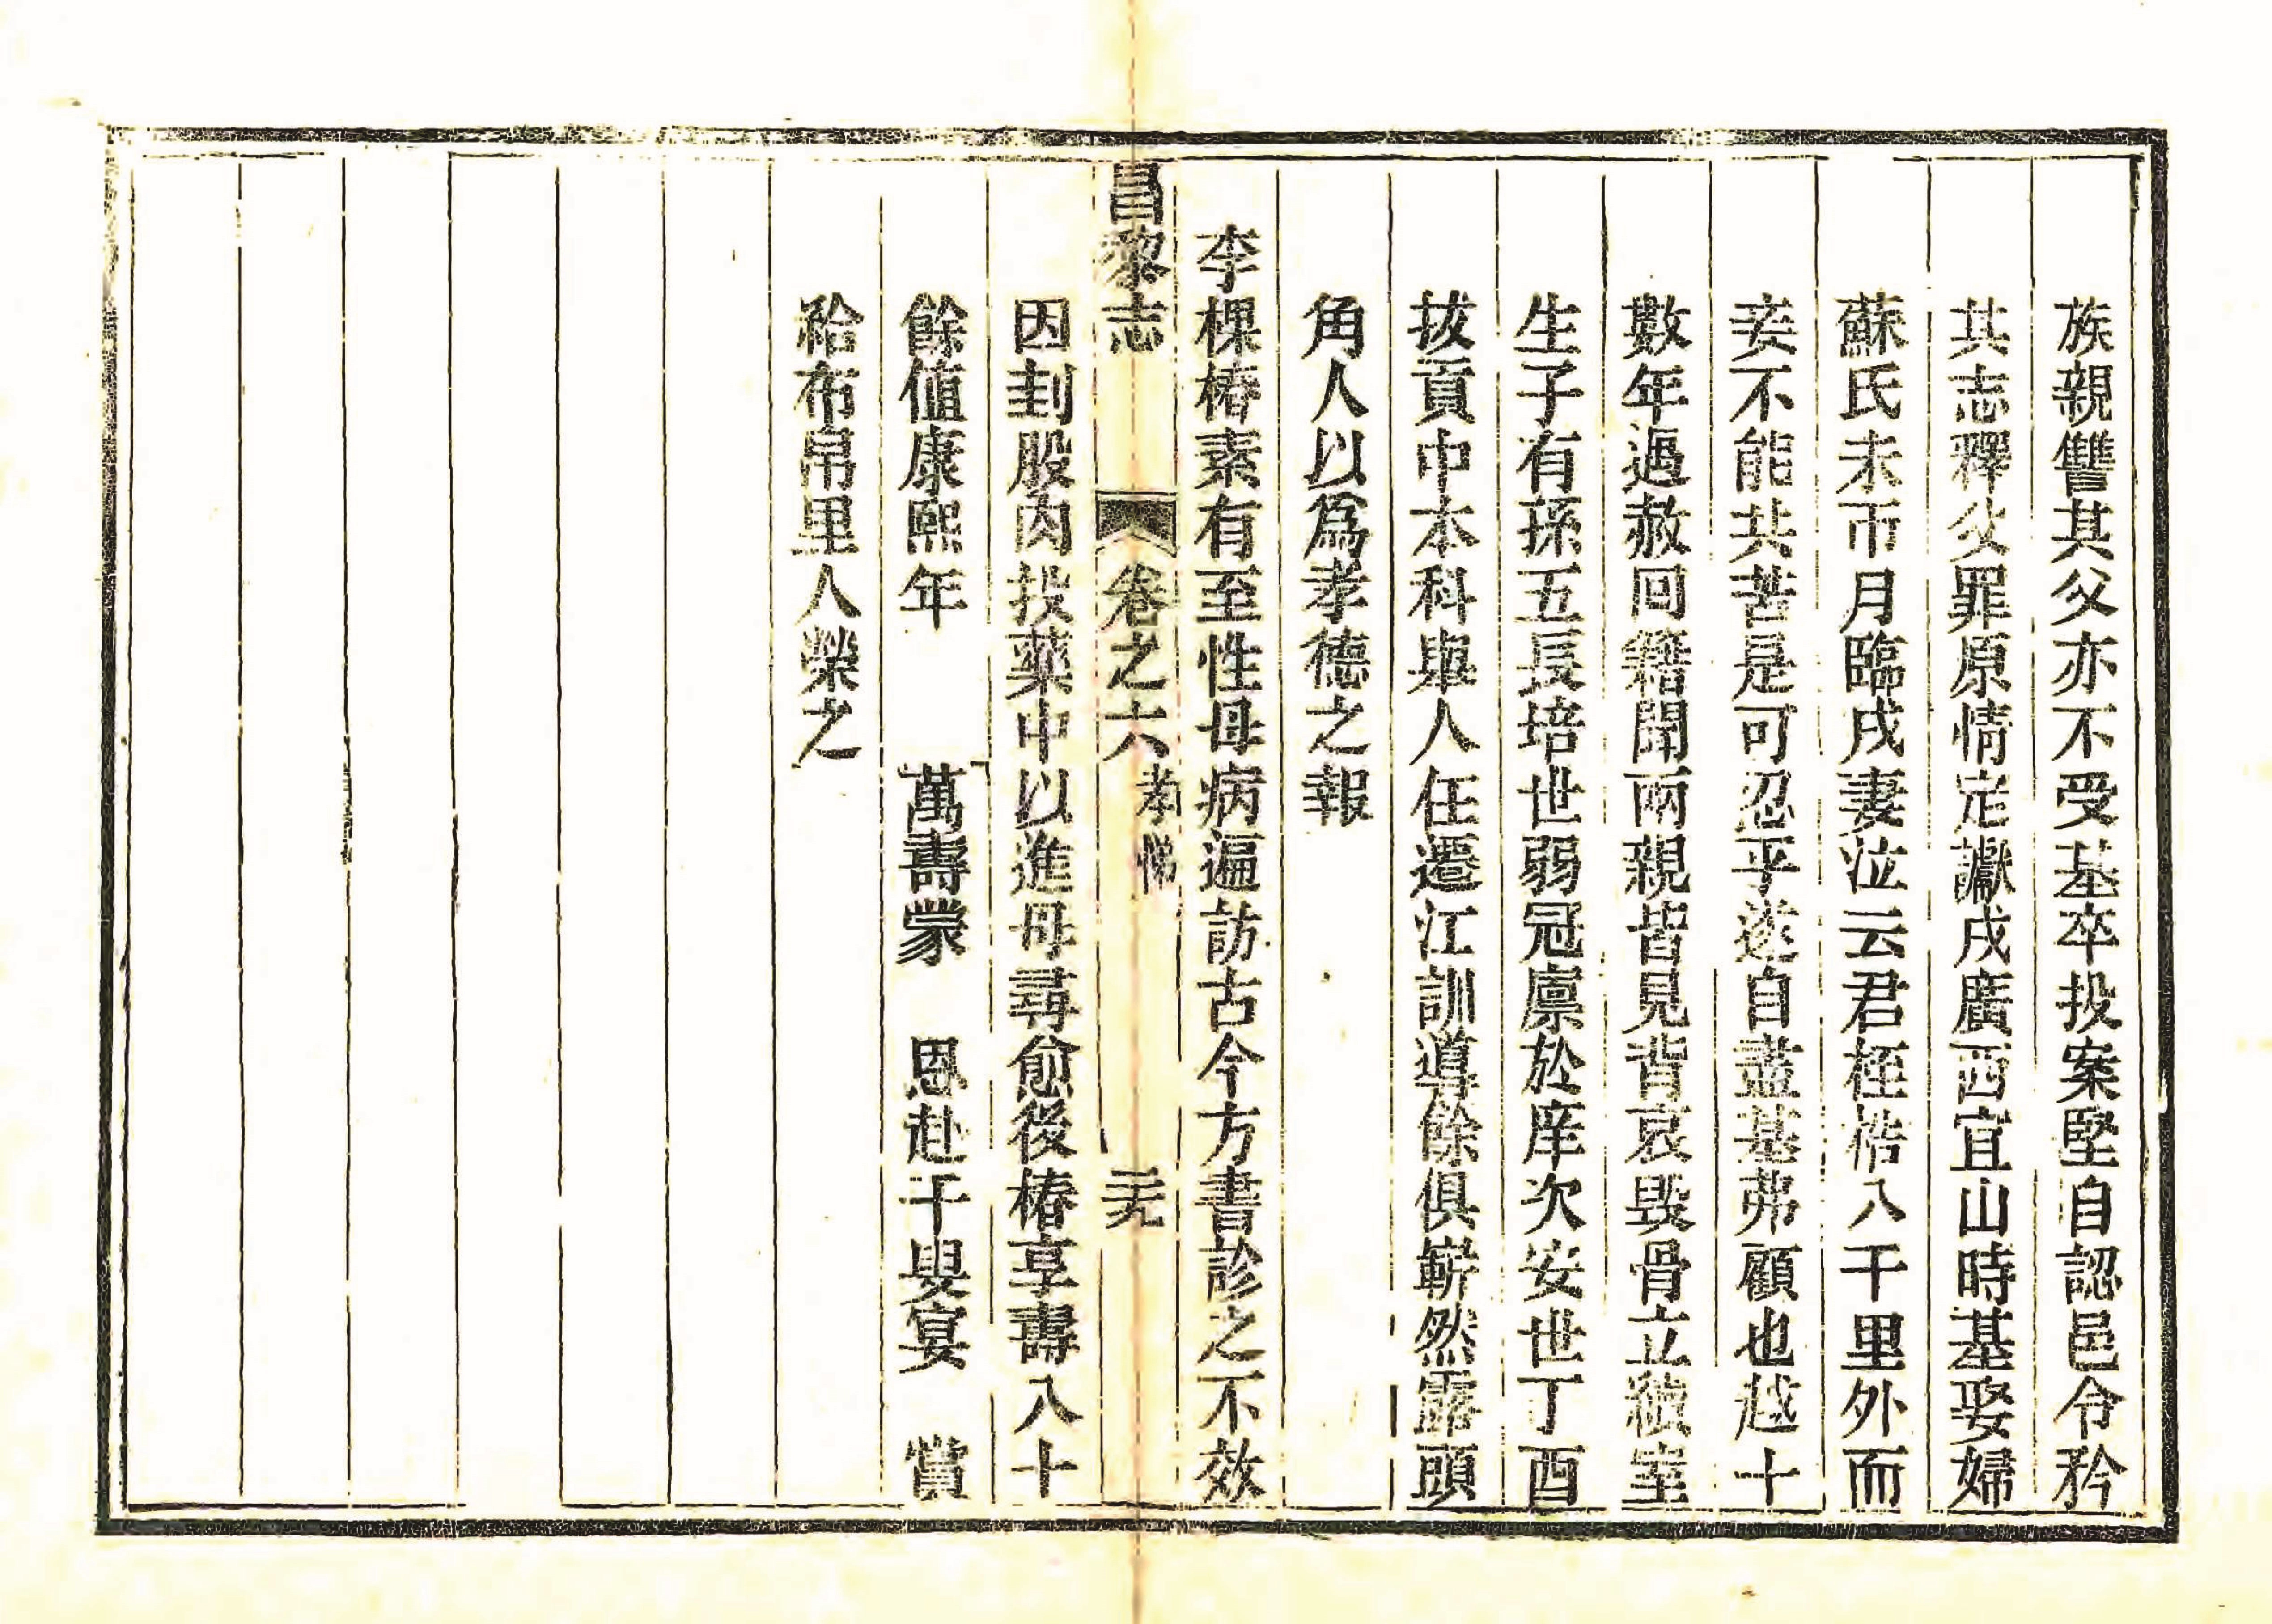 族親讐其父亦不受基卒投案堅自認邑令矜
其志釋父罪原情定讞戍廣西宜山時基娶婦
蘇氏未帀月臨戍妻泣云君桎梏八千里外而
妾不能共苦是可忍乎遂自盡基弗顧也越十
數年遇赦回籍聞兩親皆見背哀毀骨立續室
生子有孫五長培世弱冠廩於庠次安世丁酉
拔貢中本科舉人任遷江訓導餘俱嶄然露頭
角人以爲孝德之報
李棵椿素有至性母病遍訪古今方書診之不效
昌黎志 卷之六 孝悌 二十九
因刲股肉投藥中以進母尋愈後椿享壽八十
餘值康熙年 萬壽蒙 恩赴千叟宴 賞
給布帛里人榮之